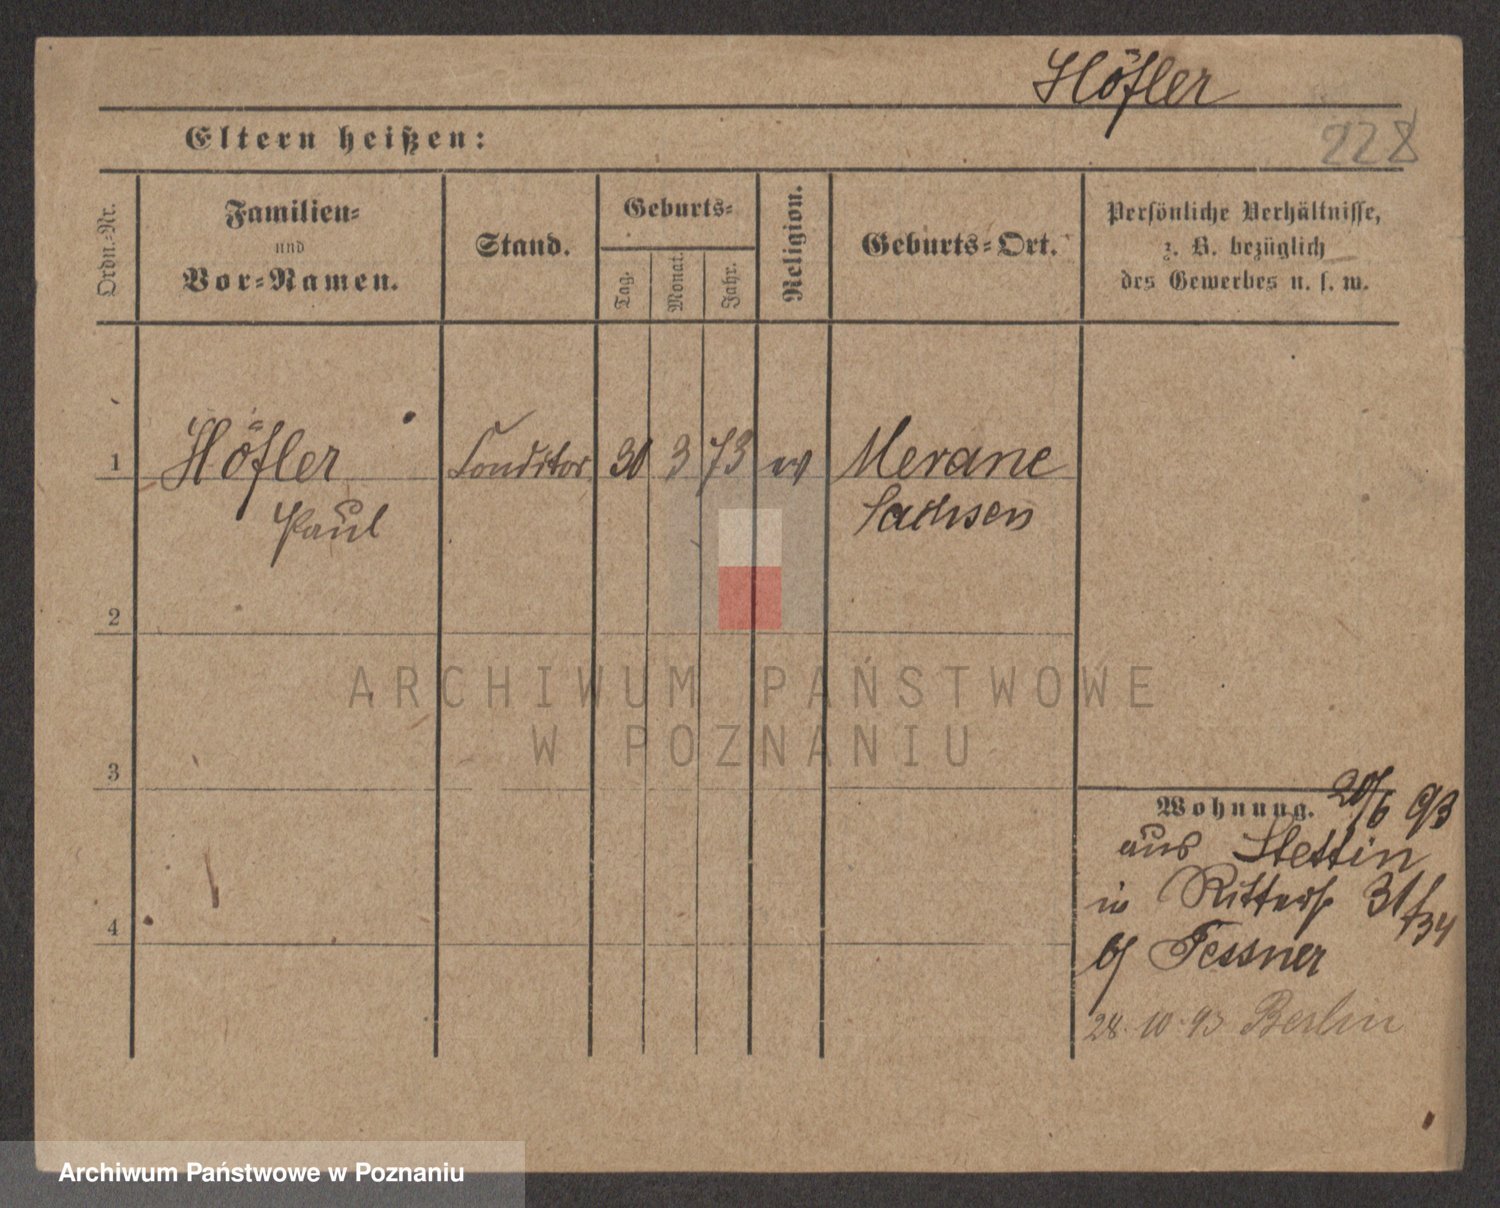 Höfler
Eltern heißen:
228
Ordn.-Nr.
Familien-
und
Vor-Namen.
Stand.
Geburts-
Tag.
Monat.
Jahr.
Religion.
Geburts-Ort.
Persönliche Verhältnisse,
z. B. bezüglich
des Gewerbes u. s. w.
1
Höfler
Paul
Conditor
30
3
73
ev
Merane
Sachsen
2
ARCHIWUM PAŃSTWOWE
W POZNANIU
3
Wohnung.
20/6 93
aus Stettin
in Ritterſ 31/34
b/ Fessner
28. 10. 93 Berlin
4
Archiwum Państwowe w Poznaniu